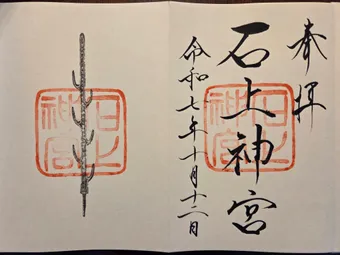 奉拝
石上神宮
令和七年十月十二日
石上神宮
石上神宮